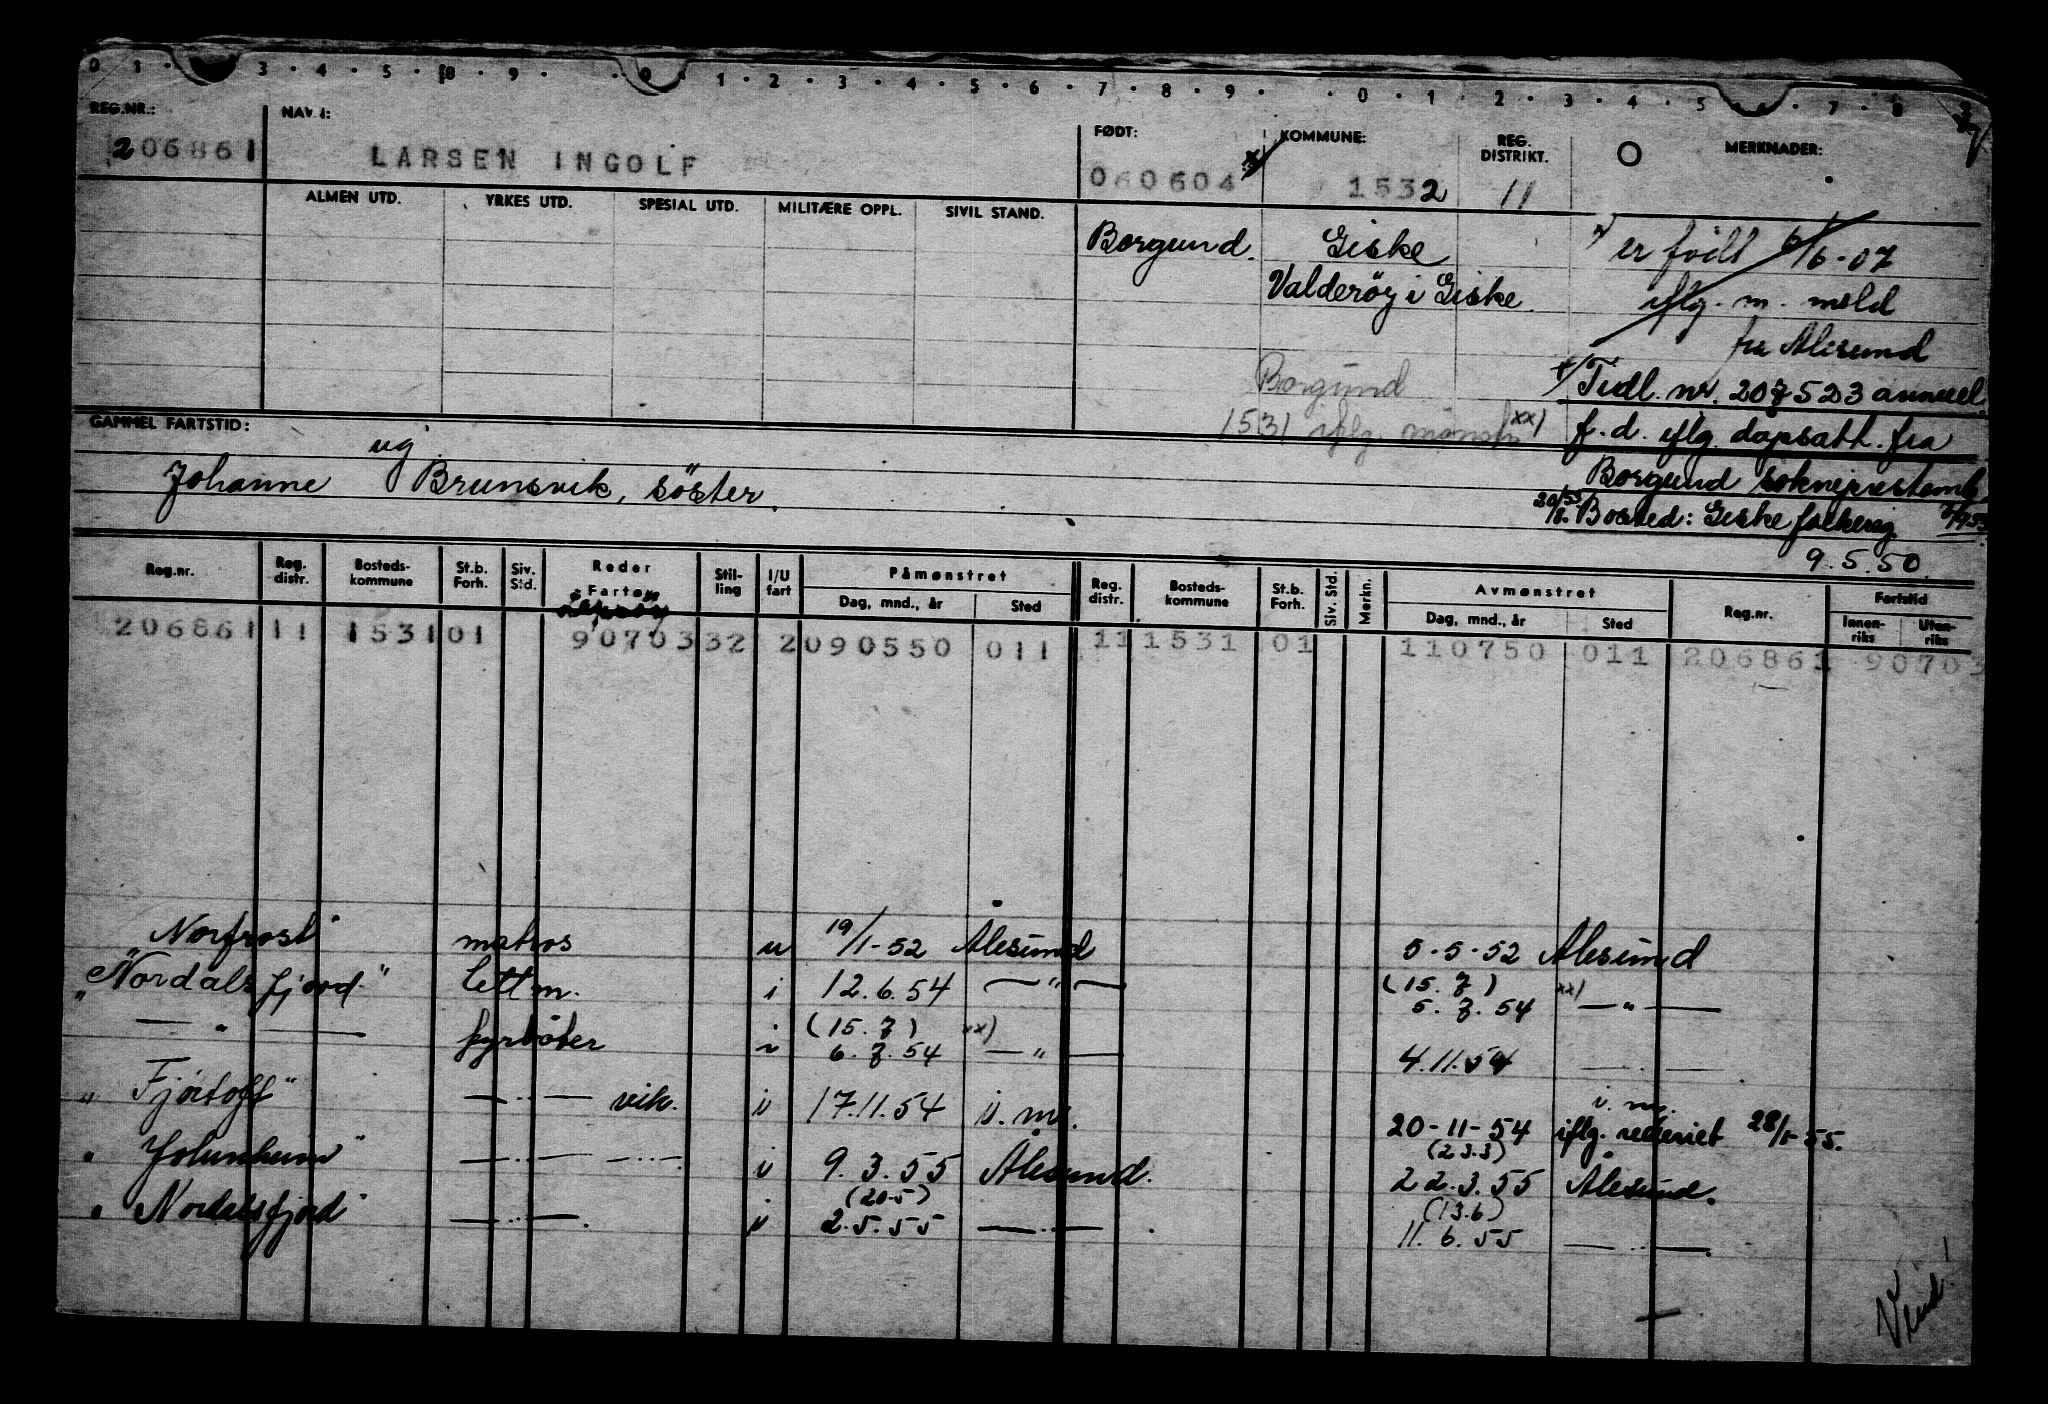 0 1 · 3 · 4 · 5 · 8 · 9 · 0 · 1 · 2 · 3 · 4 · 5 · 6 · 7 · 8 · 9 · 0 · 1 · 2 · 3 · 4 · 5 · 7 · 8
REG.NR.: NAVN: FØDT: KOMMUNE: REG. DISTRIKT. MERKNADER:
206861 LARSEN INGOLF 060604 x) 1532 11
ALMEN UTD. YRKES UTD. SPESIAL UTD. MILITÆRE OPPL. SIVIL STAND.
Borgund. Giske x) er född 6/6-07
Valderöy i Giske. iflg. m. meld
fra Ålesund
Borgund x/ Tidl. nr. 207523 annul.
1531 iflg. mønstr. xx) f.d. iflg. dåpsatt. fra
GAMMEL FARTSTID:
ug Borgund sokneprestemb.
Johanne Brunsvik, söster. 20/8.55 Bosted: Giske folkereg.
9.5.50.
Reg.nr. Reg. distr. Bosteds-kommune St.b. Forh. Siv. Std. Reder Fartøy Stil-ling I/U fart Påmønstret Reg. distr. Bosteds-kommune St.b. Forh. Siv. Std. Merkn. Avmønstret Reg.nr. Fartstid
Dag, mnd., år Sted Dag, mnd., år Sted Innen-riks Uten-riks
206861 11 1531 01 90703 32 2 090550 011 11 1531 01 110750 011 206861 90703
"Norfrost" matros u 19/1-52 Ålesund 5-5-52 Ålesund
"Nordalsfjord" lettm. i 12.6.54 — " — (15.7) 5.7.54 xx) — " —
— " — fyrböter i (15.7) 6.7.54 xx) — " — 4.11.54 — " —
"Fjörtoft" — " — vik. i 17.11.54 i.m. 20-11-54 i.m. iflg. rederiet 28/1-55.
"Jotunheim" — " — — " — i 9.3.55 Ålesund. (23.3) 22.3.55 Ålesund.
"Nordalsfjord" — " — i (20.5) 2.5.55 — " — (13.6) 11.6.55 — " —
Vend!